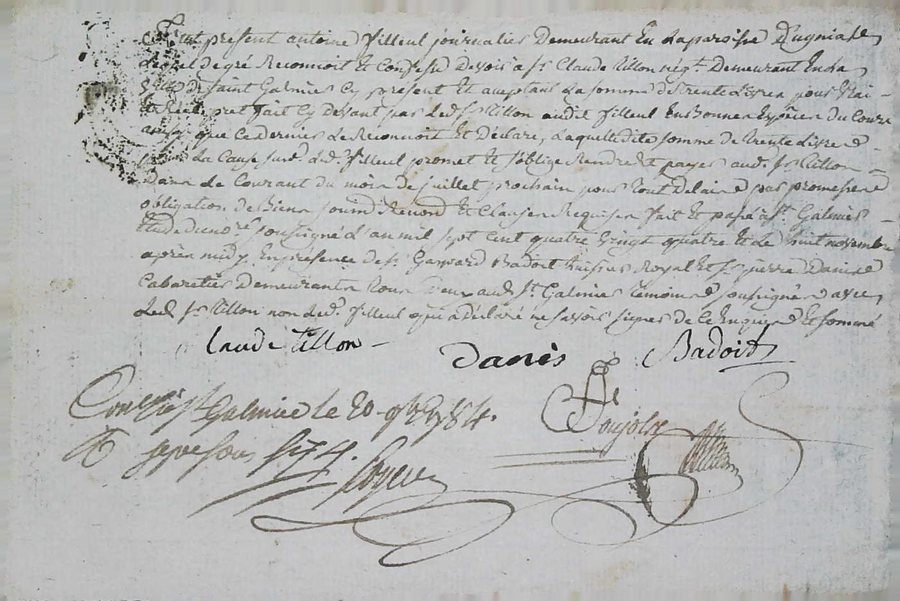 fut present antoine filleul journalier Demeurant En La paroisse D'aveizieu
Lequel de gré Reconnoit Et Confesse Devoir a sr. Claude tillon négt. Demeurant En La
Ville de Saint Galmier Cy present et aceptant La somme de trente Livres pour Vrai
et Réel pret fait Cy devant par Led. sr. tillon audit filleul En bonnes Espèces du Cours
que Ce dernier Le Reconnoit Et Déclare, Laquelle dite somme de trente Livres
La Cause susd. Led. filleul promet Et s'oblige Rendre Et payer aud. sr. tillon
Dans Le Courant du mois de juillet prochain pour tout Delai par promesse
obligation de Biens soumd. Renond. Et Clauses Requises fait Et passé a St. Galmier
Etude du nore. soussigné L'an mil sept cent quatre Vingt quatre Et Le huit novembre
après midy En presence de sr. Gaspard Badoit huissier Royal Et sr. pierre Danis
Cabaretier Demeurants tous deux aud. St. Galmier temoins soussignés avec
Led. sr. tillon non Led. filleul qui a déclaré ne savoir signer de Ce Enquis Et sommé
Claude tillon
Danis
Badoit
Conllé a St. Galmier le 20 9bre 1784.